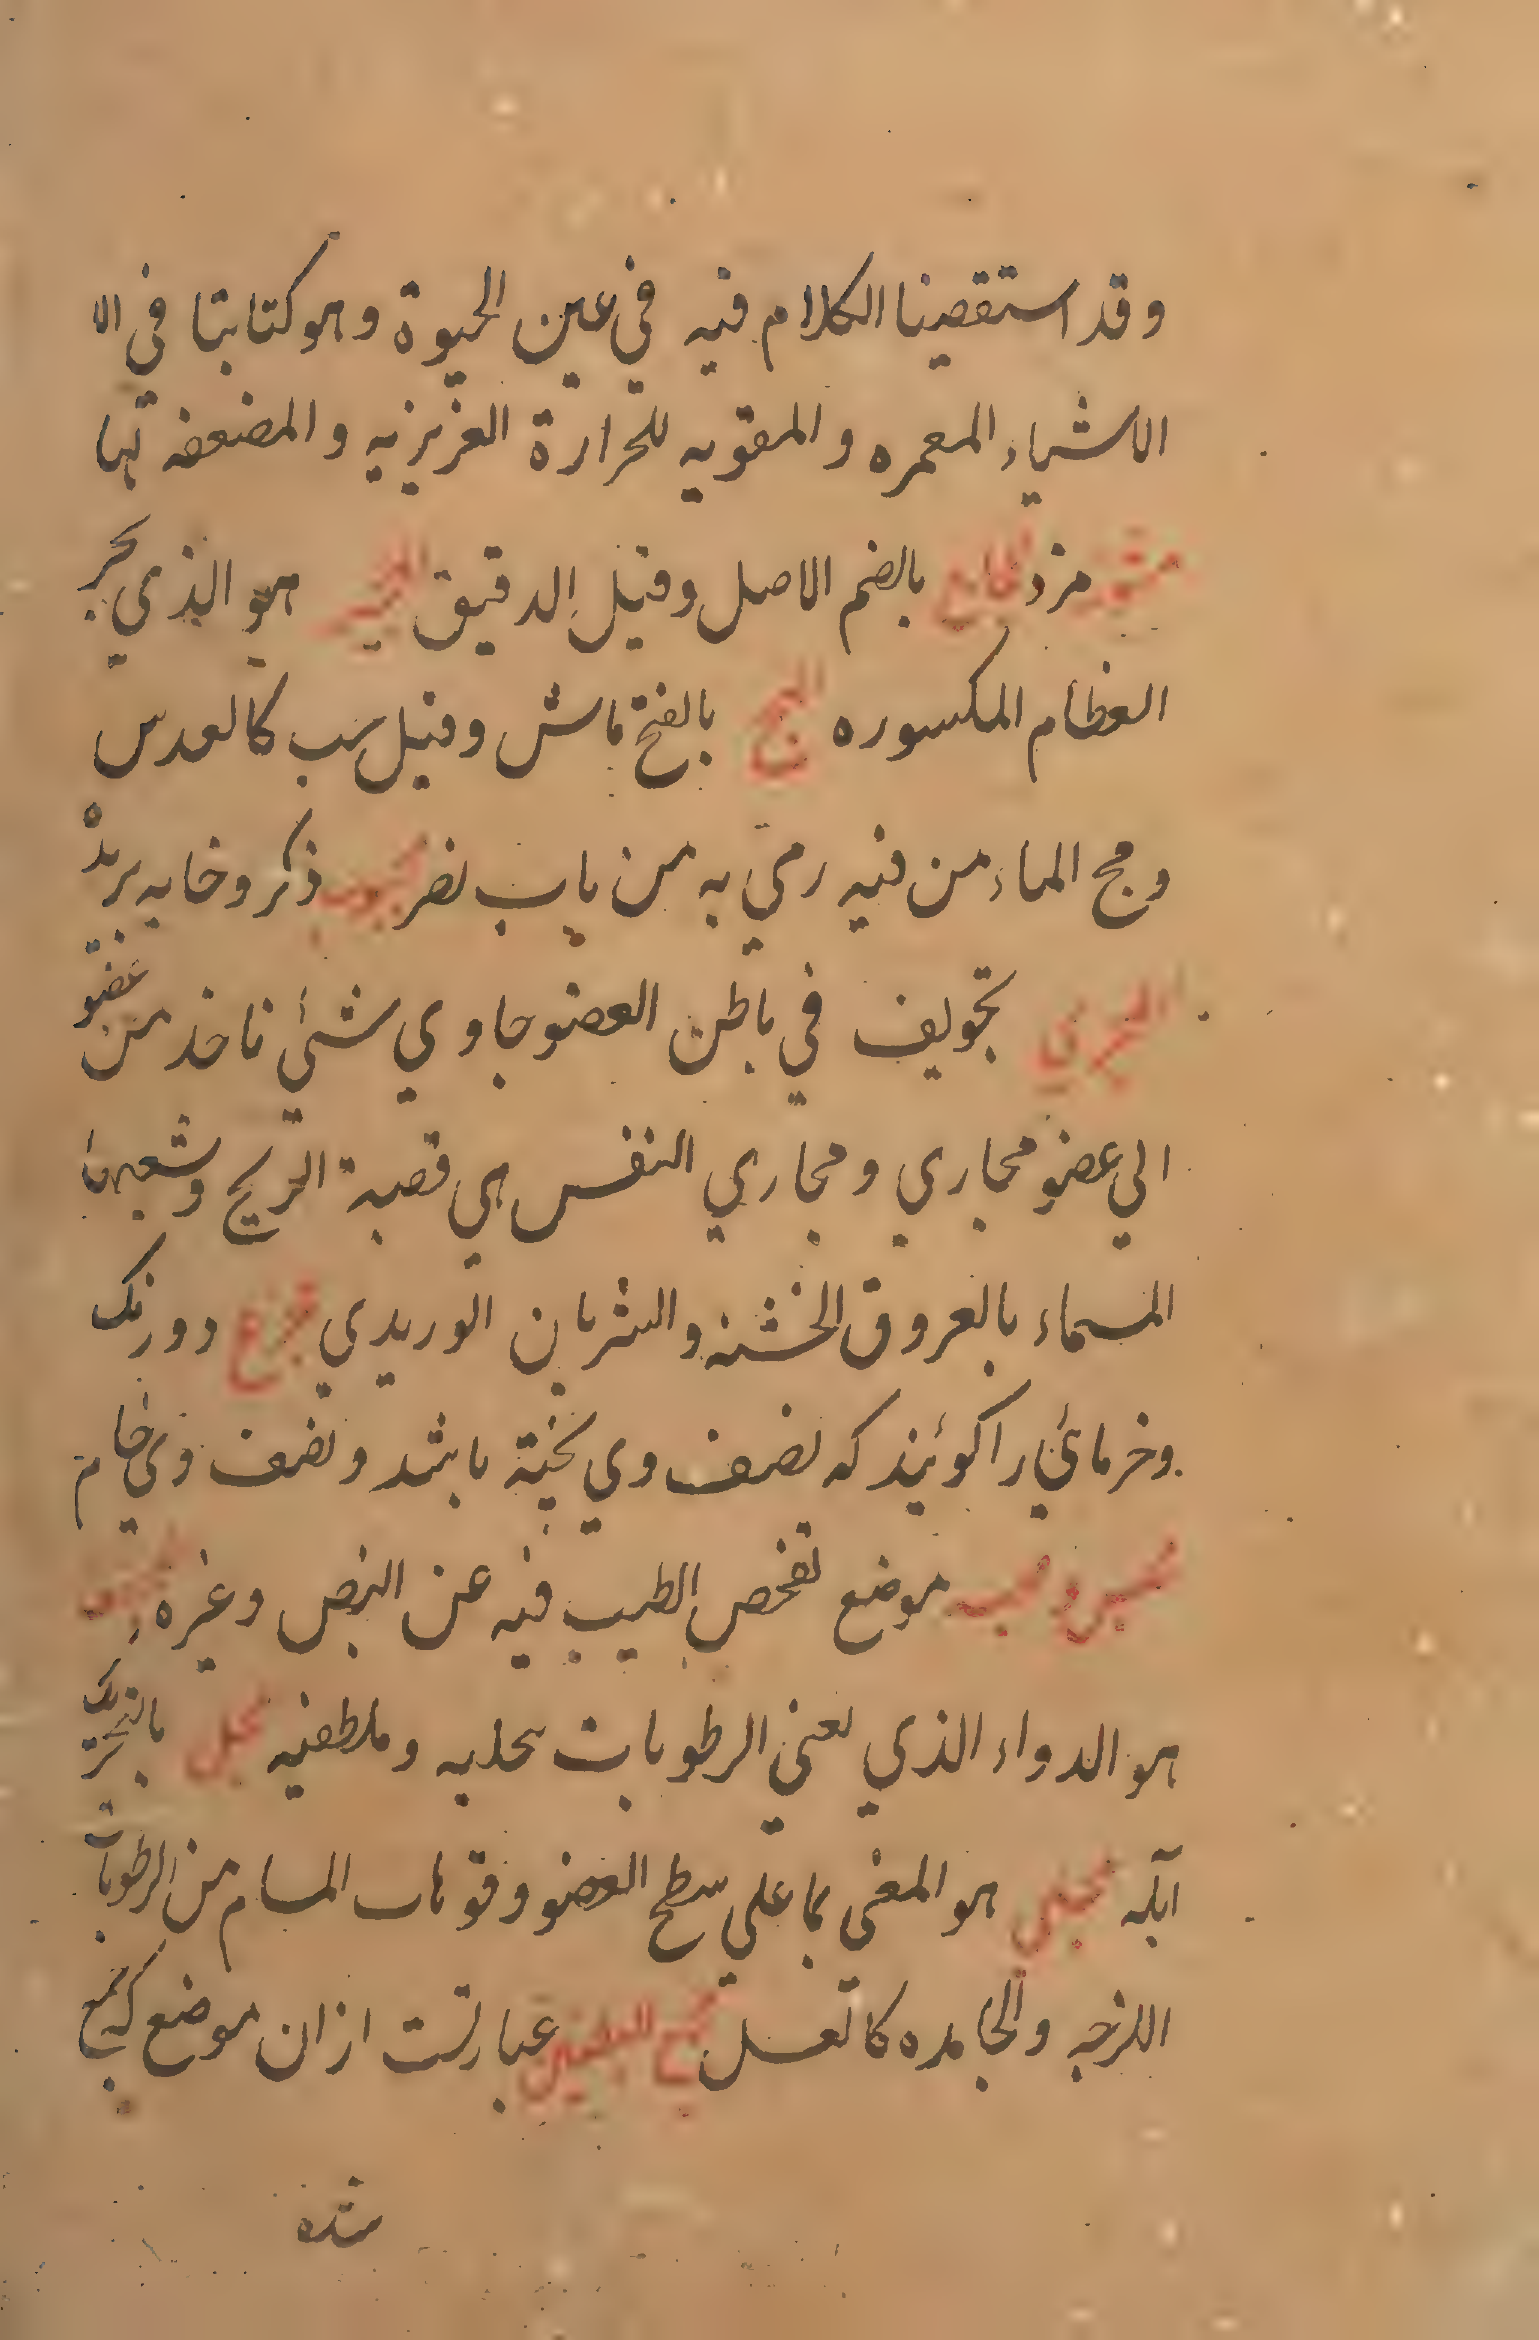 وقد استقصينا الكلام فيه في عين الحيوة وهو كتابنا في الا
الاشياء المعمره والمقويه للحرارة الغريزيه والمضعفه لها
مزد بالضم الاصل وقيل الدقيق المجبر هو الذي يجبر
العظام المكسوره المج بالفتح ماش وقيل حب كالعدس
ومج الماء من فيه رمي به من باب نصر مجبوب ذكر وخايه بريده
المجري تجويف في باطن العضو حاوي شئ نافذ من عضو
الي عضو مجاري ومجاري النفس هي قصبة الريح وشعبها
المسماء بالعروق الخشنه والشريان الوريدي مجزع دو رنك
وخرمائي را كوئيند كه نصف وي پخته باشد ونصف وي خام
مجس ومجسه موضع تفحص الطبيب فيه عن النبض وغيره
هو الدواء الذي يفني الرطوبات بتحليه وملطفيه مجل بالتحريك
آبله مجلي هو المغني بما علي سطح العضو وفوهات المسام من الرطوبات
اللزجه والجامده كالعسل مجمع البطنين عبارتست از ان موضع كه جمع
شده